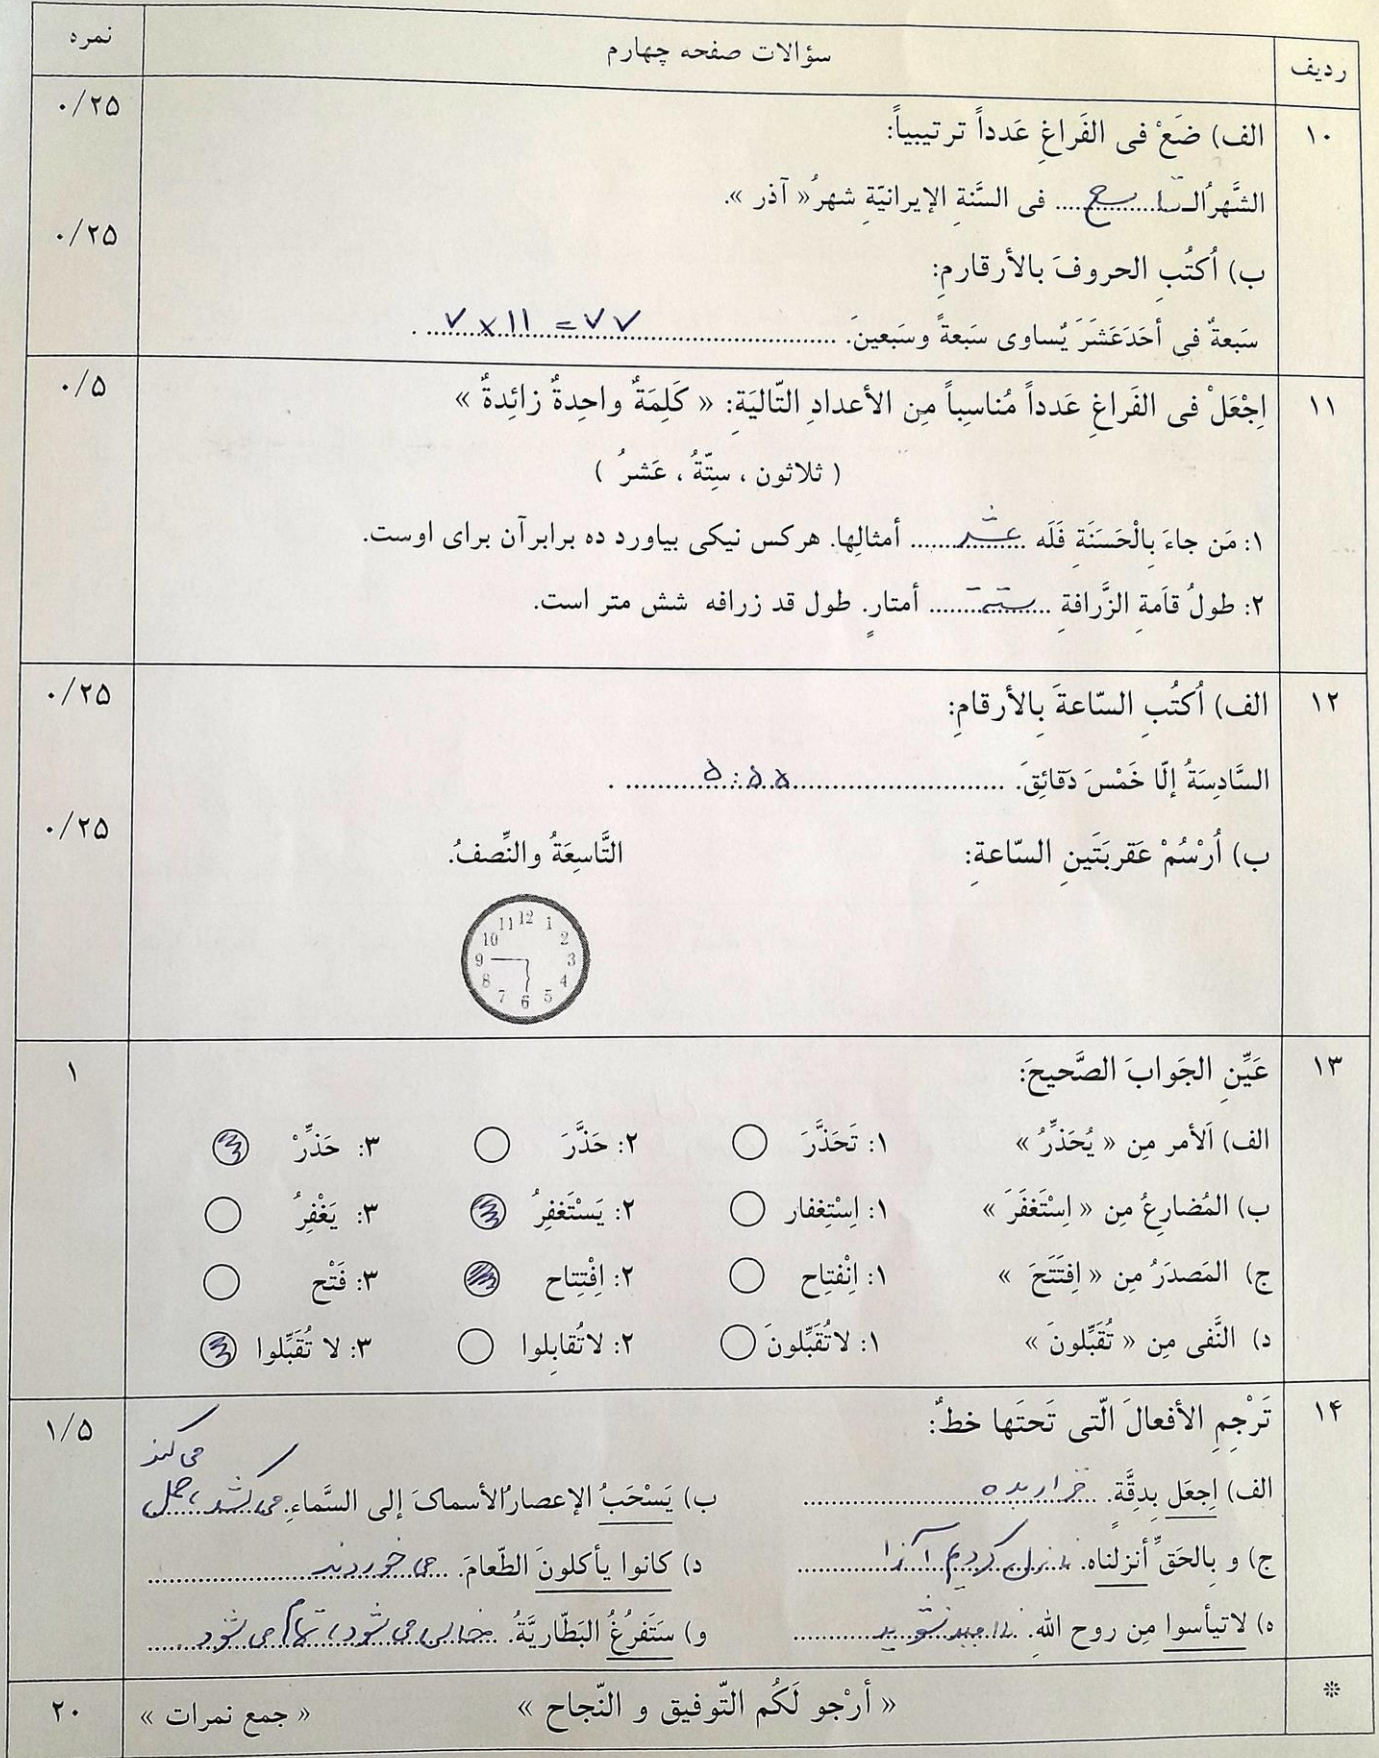 ردیف سؤالات صفحه چهارم نمره
۱۰ الف) ضَعْ فی الفَراغِ عَدداً ترتیبیاً: ۰/۲۵
الشَّهرُ الـتاسع فی السَّنةِ الإیرانیّةِ شهرُ« آذر ».
ب) اُکتُبِ الحروفَ بالأرقارمِ: ۰/۲۵
سَبعةٌ فی أحَدَعَشَرَ یُساوی سَبعةً وسَبعینَ. ۷×۱۱=۷۷ .
۱۱ اِجْعَلْ فی الفَراغِ عَدداً مُناسِباً مِن الأعدادِ التّالیَةِ: « کَلِمَةٌ واحِدةٌ زائِدةٌ » ۰/۵
( ثلاثون ، سِتّةُ ، عَشرُ )
۱: مَن جاءَ بِالْحَسَنَةِ فَلَه عشر أمثالِها. هرکس نیکی بیاورد ده برابرآن برای اوست.
۲: طولُ قاَمةِ الزَّرافةِ ستة أمتارٍ. طول قد زرافه شش متر است.
۱۲ الف) اُکتُبِ السّاعةَ بِالأرقامِ: ۰/۲۵
السَّادِسَةُ إلّا خَمْسَ دَقائِقَ. ۵:۵۵ .
ب) اُرْسُمْ عَقربَتَینِ السّاعةِ: التَّاسِعَةُ والنِّصفُ. ۰/۲۵
12 1 2 3 4 5 6 7 8 9 10 11
۱۳ عَیِّنِ الجَوابَ الصَّحیحَ: ۱
الف) اَلأمر مِن « یُحَذِّرُ » ۱: تَحَذَّرَ ۲: حَذَّرَ ۳: حَذِّرْ
ب) المُضارِعُ مِن « اِسْتَغفَرَ » ۱: اِسْتِغفار ۲: یَسْتَغفِرُ ۳: یَغْفِرُ
ج) المَصدَرُ مِن « اِفتَتَحَ » ۱: اِنْفتِاح ۲: اِفْتِتاح ۳: فَتْح
د) النَّفی مِن « تُقَبِّلونَ » ۱: لاتُقَبِّلونَ ۲: لاتُقابِلوا ۳: لا تُقَبِّلوا
۱۴ تَرْجِمِ الأفعالَ الّتی تَحتَها خطٌ: ۱/۵
الف) اِجعَل بِدِقَّةٍ. قرار بده ب) یَسْحَبُ الإعصارُالأسماکَ إلی السَّماءِ. می کشد، حمل می کند
ج) و بِالحَقِّ أنزلناه. نازل کردیم آنرا د) کانوا یأکلونَ الطّعامَ. می خوردند
ه) لاتیأسوا مِن روح اللهِ. ناامید نشوید و) سَتَفرُغُ البَطّاریَّةُ. خالی می شود، تمام می شود
* « أرْجو لَکُم التّوفیق و النّجاح » « جمع نمرات » ۲۰